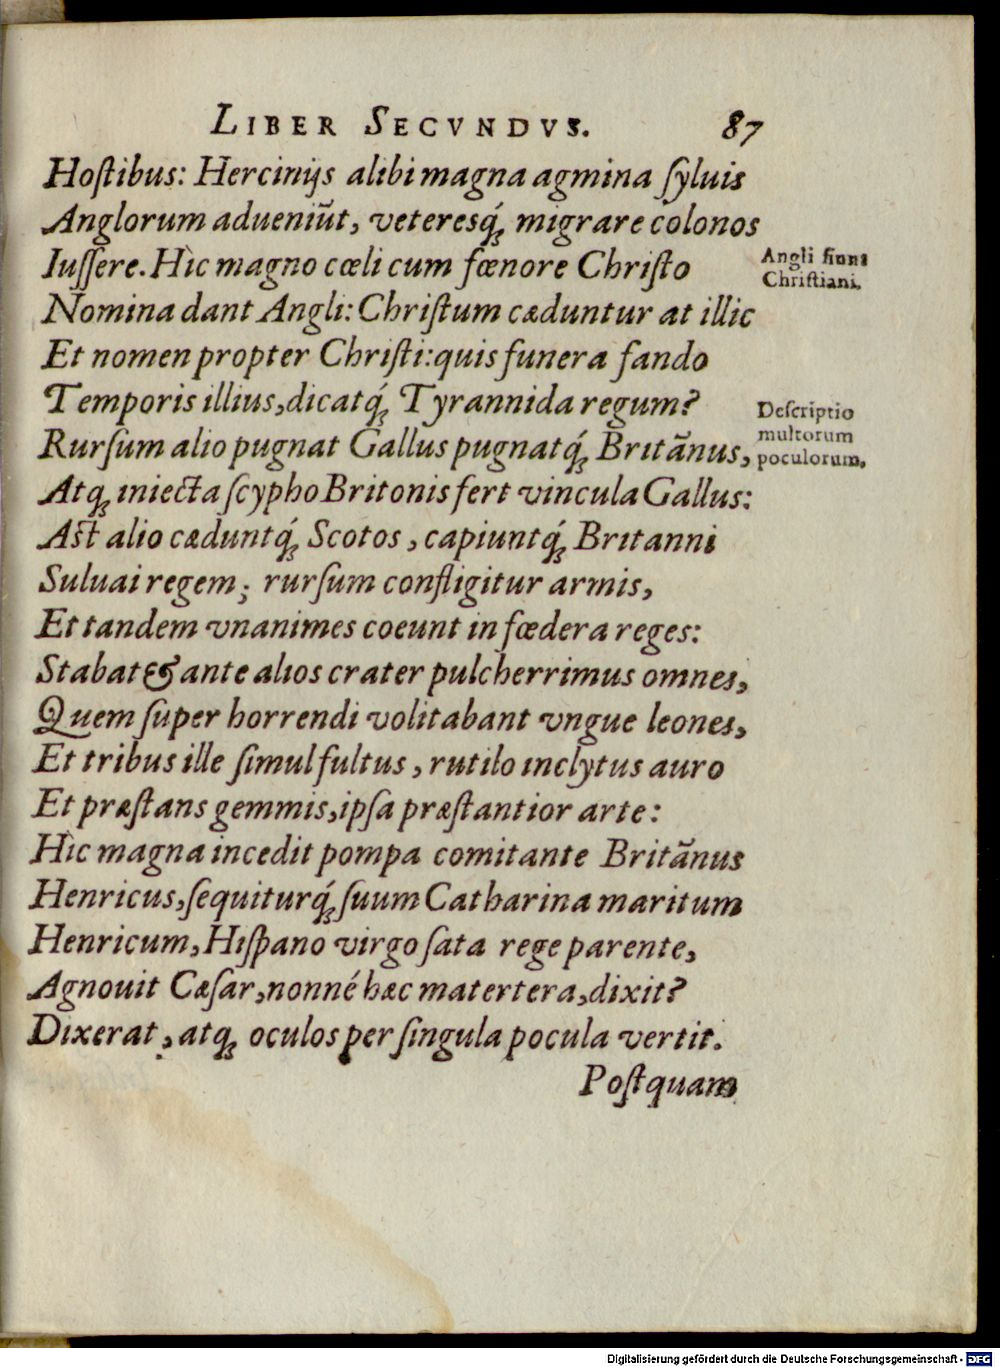 LIBER SECVNDVS. 87
Hoſtibus: Hercinijs alibi magna agmina ſyluis
Anglorum adueniũt, veteresq́; migrare colonos
Iuſſere. Hìc magno cœli cum fœnore Chriſto
Angli fiunt
Chriſtiani.
Nomina dant Angli: Chriſtum cæduntur at illic
Et nomen propter Chriſti: quis funera fando
Temporis illius, dicatq́; Tyrannida regum?
Deſcriptio
multorum
poculorum.
Rurſum alio pugnat Gallus pugnatq́; Britãnus,
Atq; iniecta ſcypho Britonis fert vincula Gallus:
Aſt alio cæduntq́; Scotos, capiuntq́; Britanni
Suluai regem; rurſum confligitur armis,
Et tandem vnanimes coeunt in fœdera reges:
Stabat & ante alios crater pulcherrimus omnes,
Quem ſuper horrendi volitabant vngue leones,
Et tribus ille ſimul fultus, rutilo inclytus auro
Et præſtans gemmis, ipſa præſtantior arte:
Hìc magna incedit pompa comitante Britãnus
Henricus, ſequiturq́; ſuum Catharina maritum
Henricum, Hiſpano virgo ſata rege parente,
Agnouit Cæſar, nonné hæc matertera, dixit?
Dixerat, atq; oculos per ſingula pocula vertit.
Poſtquam
Digitalisierung gefördert durch die Deutsche Forschungsgemeinschaft - DFG